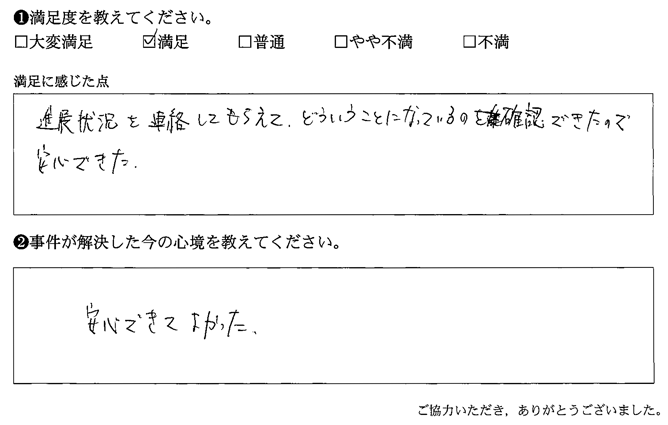 ❶満足度を教えてください。
□大変満足 ☑満足 □普通 □やや不満 □不満
満足に感じた点
進展状況を連絡してもらえて、どういうことになっているのを確認できたので
安心できた.
❷事件が解決した今の心境を教えてください。
安心できてよかった、
ご協力いただき，ありがとうございました。